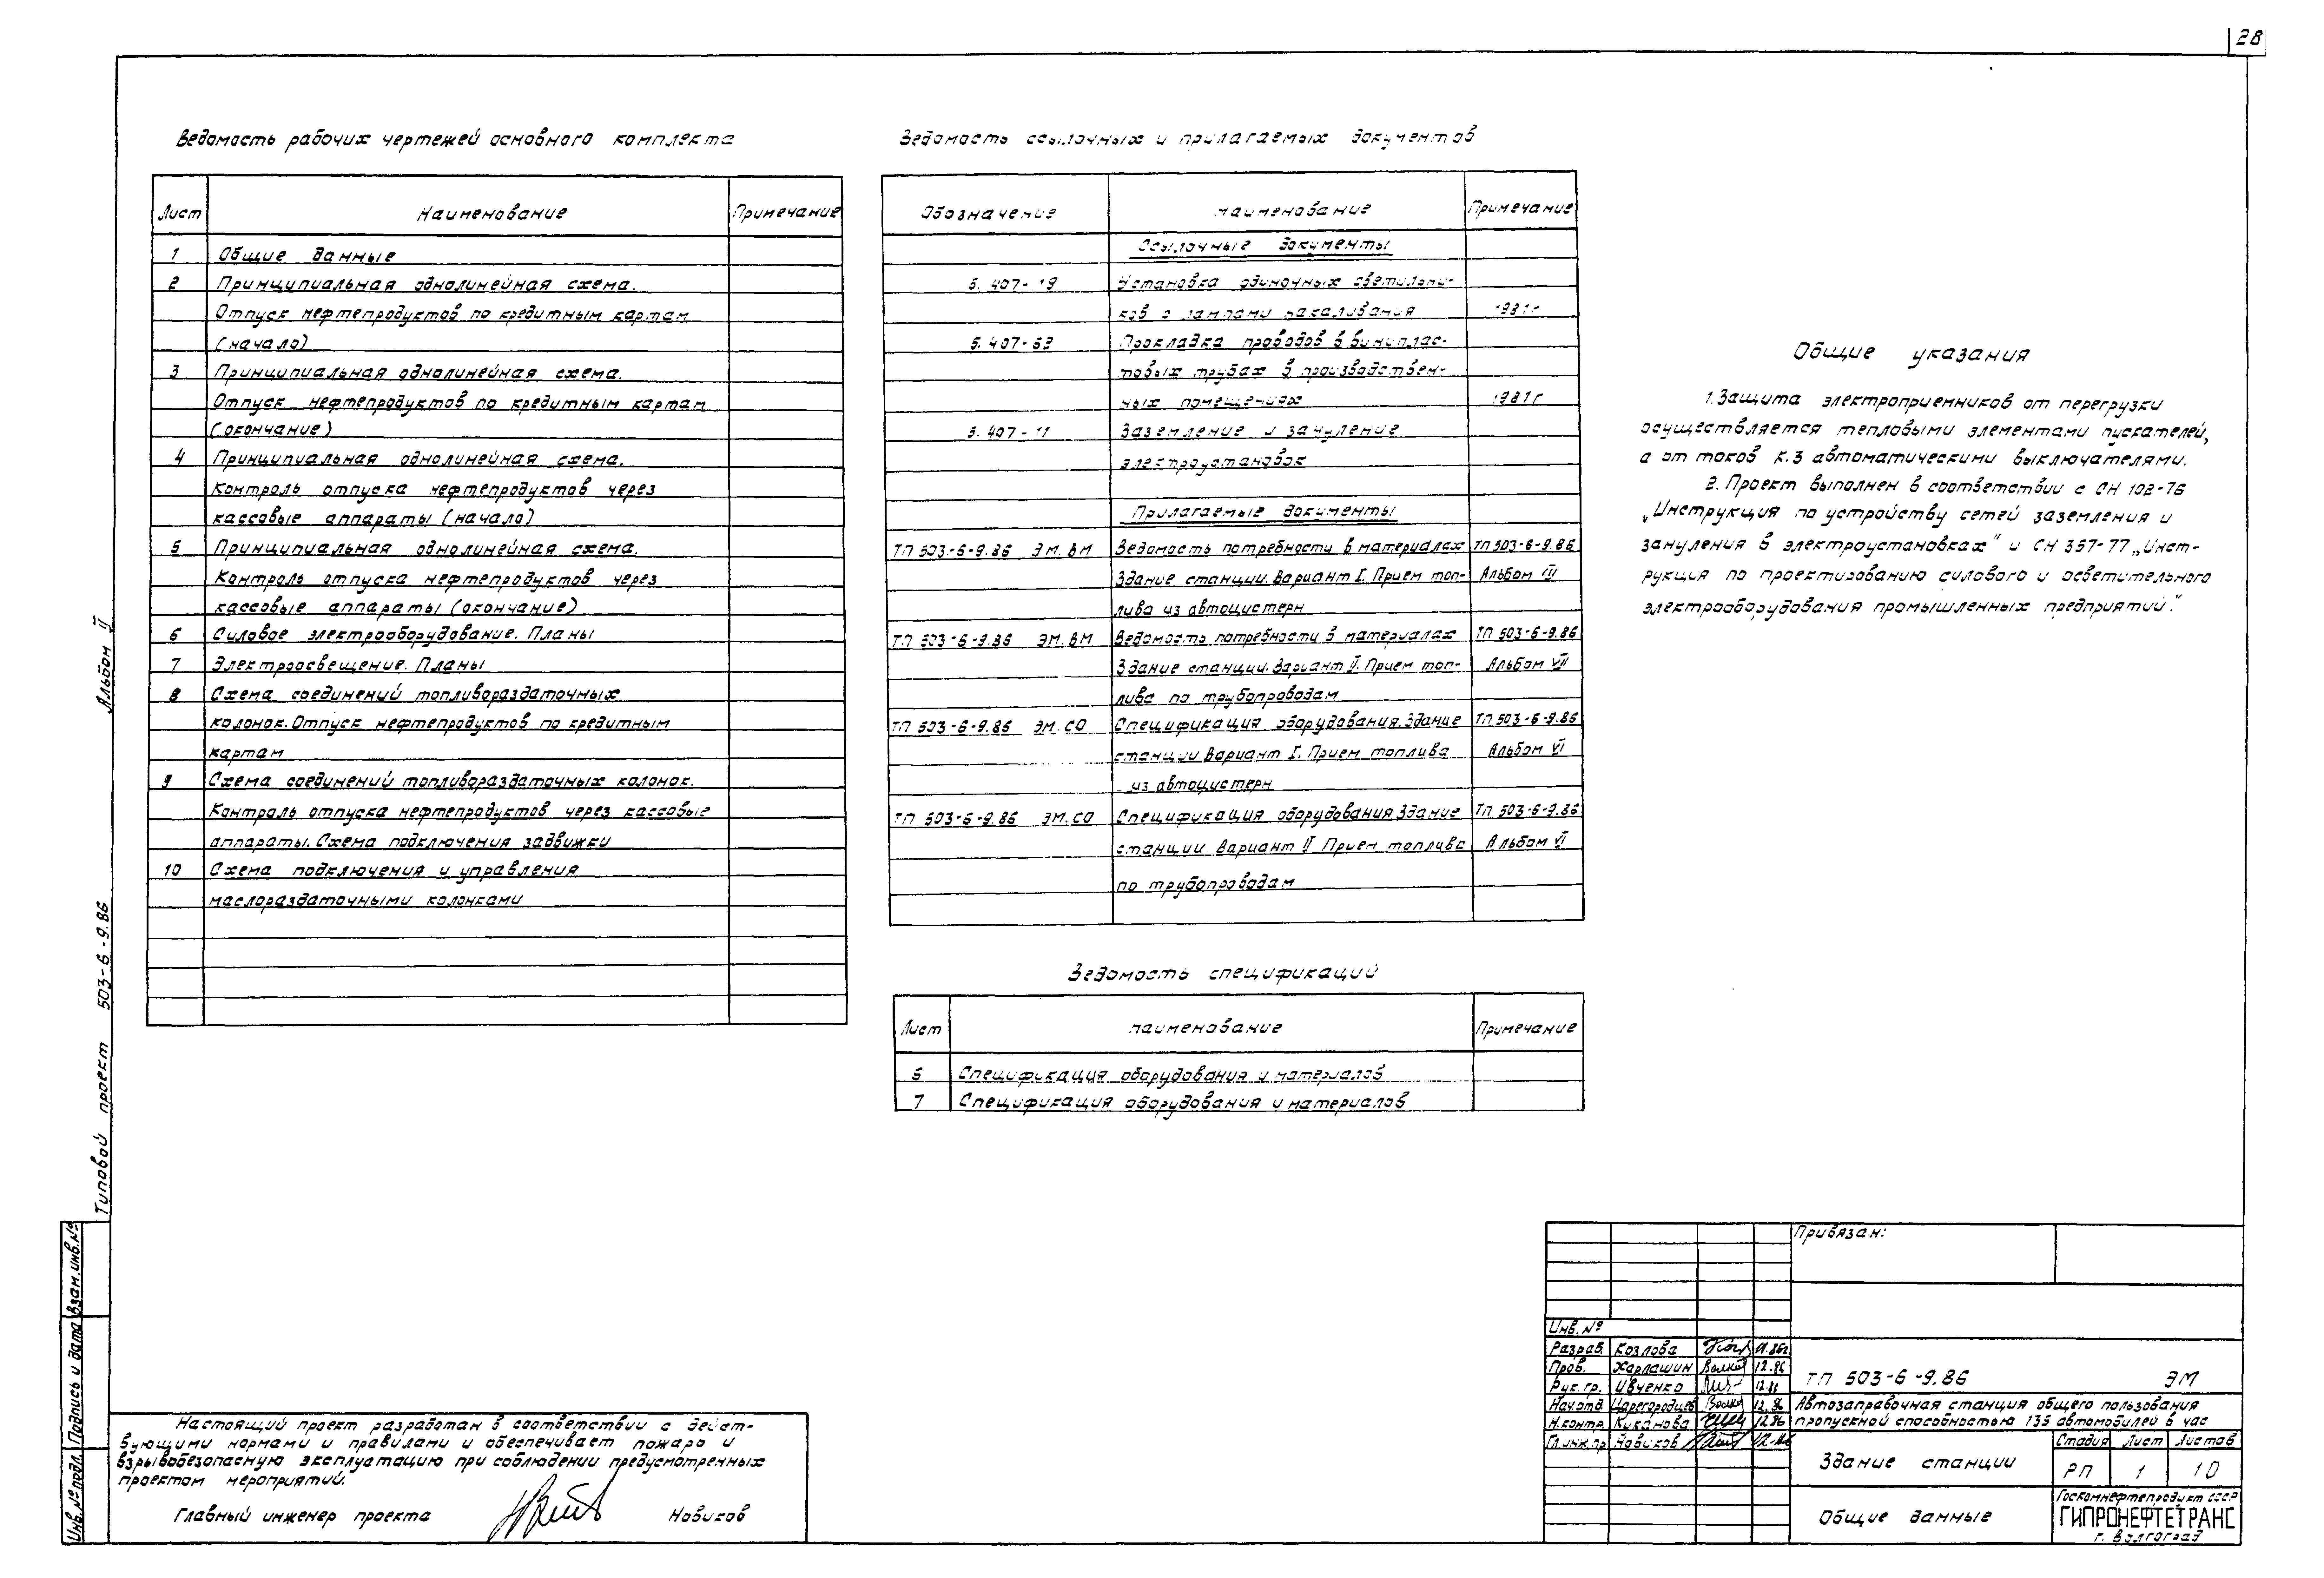 28
Ведомость рабочих чертежей основного комплекта
Лист Наименование Примечание
1 Общие данные
2 Принципиальная однолинейная схема.
Отпуск нефтепродуктов по кредитным картам
(начало)
3 Принципиальная однолинейная схема.
Отпуск нефтепродуктов по кредитным картам
(окончание)
4 Принципиальная однолинейная схема.
Контроль отпуска нефтепродуктов через
кассовые аппараты (начало)
5 Принципиальная однолинейная схема.
Контроль отпуска нефтепродуктов через
кассовые аппараты (окончание)
6 Силовое электрооборудование. Планы
7 Электроосвещение. Планы
8 Схема соединений топливораздаточных
колонок. Отпуск нефтепродуктов по кредитным
картам
9 Схема соединений топливораздаточных колонок.
Контроль отпуска нефтепродуктов через кассовые
аппараты. Схема подключения задвижки
10 Схема подключения и управления
маслораздаточными колонками
Ведомость ссылочных и прилагаемых документов
Обозначение Наименование Примечание
Ссылочные документы
5.407-19 Установка одиночных светильни-
ков с лампами накаливания 1981г.
5.407-63 Прокладка проводов в виниплас-
товых трубах в производствен-
ных помещениях 1981г
5.407-11 Заземление и зануление
электроустановок
Прилагаемые документы
ТП 503-6-9.86 ЭМ.ВМ Ведомость потребности в материалах ТП 503-6-9.86
Здание станции. Вариант I. Прием топ- Альбом VII
лива из автоцистерн
ТП 503-6-9.86 ЭМ.ВМ Ведомость потребности в материалах ТП 503-6-9.86
Здание станции. Вариант II. Прием топ- Альбом VII
лива по трубопроводам
ТП 503-6-9.86 ЭМ.СО Спецификация оборудования. Здание ТП 503-6-9.86
станции. Вариант I. Прием топлива Альбом VI
из автоцистерн
ТП 503-6-9.86 ЭМ.СО Спецификация оборудования. Здание ТП 503-6-9.86
станции. Вариант II Прием топлива Альбом VI
по трубопроводам
Ведомость спецификаций
Лист Наименование Примечание
6 Спецификация оборудования и материалов
7 Спецификация оборудования и материалов
Общие указания
1. Защита электроприемников от перегрузки
осуществляется тепловыми элементами пускателей,
а от токов к.з автоматическими выключателями.
2. Проект выполнен в соответствии с СН 102-76
„Инструкция по устройству сетей заземления и
зануления в электроустановках" и СН 357-77 „Инст-
рукция по проектированию силового и осветительного
электрооборудования промышленных предприятий."
Типовой проект 503-6-9.86 Альбом II
Инв.№подл. Подпись и дата Взам.инв.№
Настоящий проект разработан в соответствии с дейст-
вующими нормами и правилами и обеспечивает пожаро и
взрывобезопасную эксплуатацию при соблюдении предусмотренных
проектом мероприятий.
Главный инженер проекта Новиков
Привязан:
Инв.№
Разраб. Козлова 11.86г
Пров. Харлашин 12.86
Рук.гр. Ивченко 12.86
Нач.отд. Царегородцев 12.86
Н.контр. Куканова 12.86
Гл.инж.пр Новиков 12.86
ТП 503-6-9.86 ЭМ
Автозаправочная станция общего пользования
пропускной способностью 135 автомобилей в час
Здание станции
Стадия Лист Листов
РП 1 10
Общие данные
Госкомнефтепродукт СССР
ГИПРОНЕФТЕТРАНС
г. Волгоград